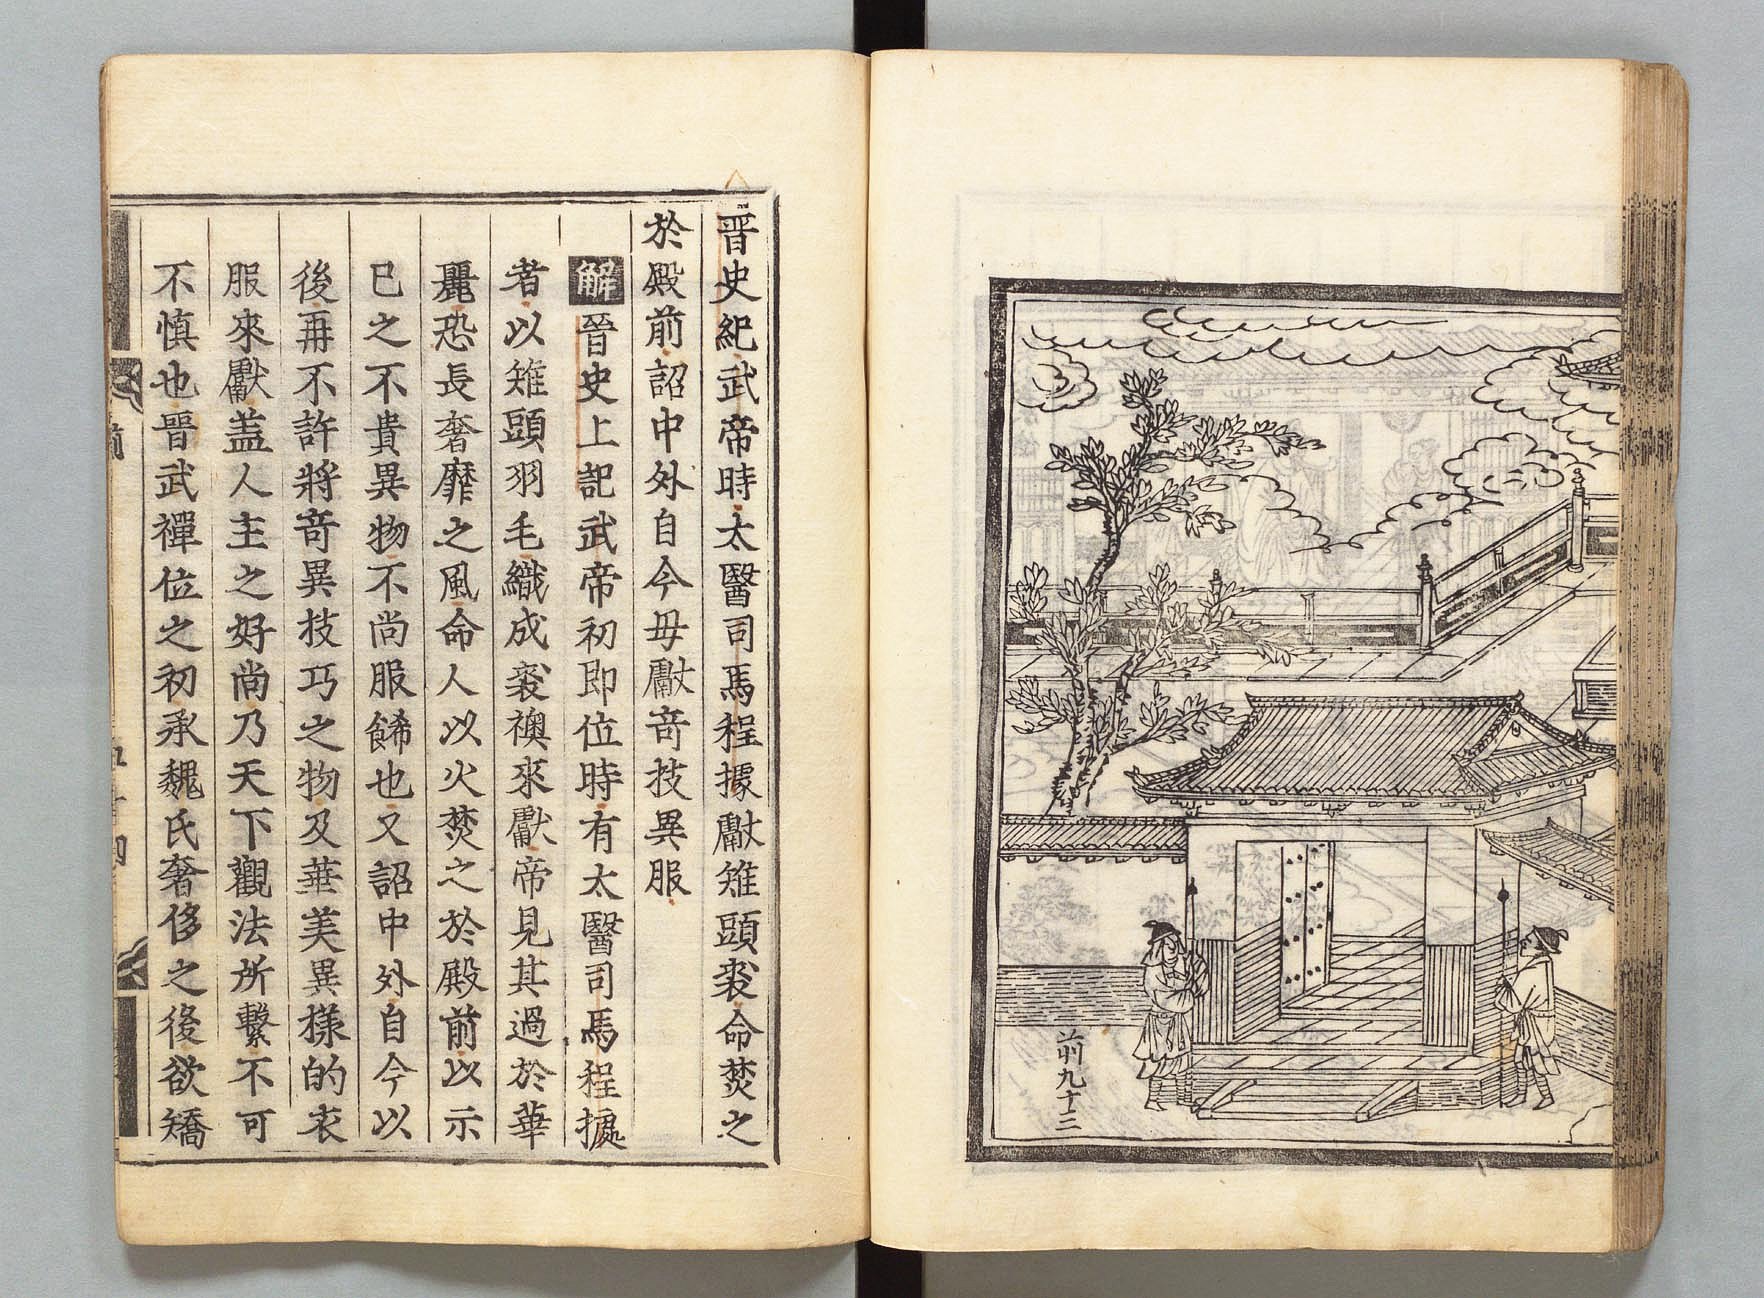 晋史紀武帝時太醫司馬程據獻雉頭裘命焚之
於殿前詔中外自今毋獻竒技異服
解晉史上記武帝初即位時有太醫司馬程據
者以雉頭羽毛織成裘襖來獻帝見其過於華
麗恐長奢靡之風命人以火焚之於殿前以示
已之不貴異物不尚服餙也又詔中外自今以
後再不許將竒異技巧之物及華美異樣的衣
服來獻盖人主之好尚乃天下觀法所繫不可
不慎也晉武禪位之初承魏氏奢侈之後欲矯
前九十三